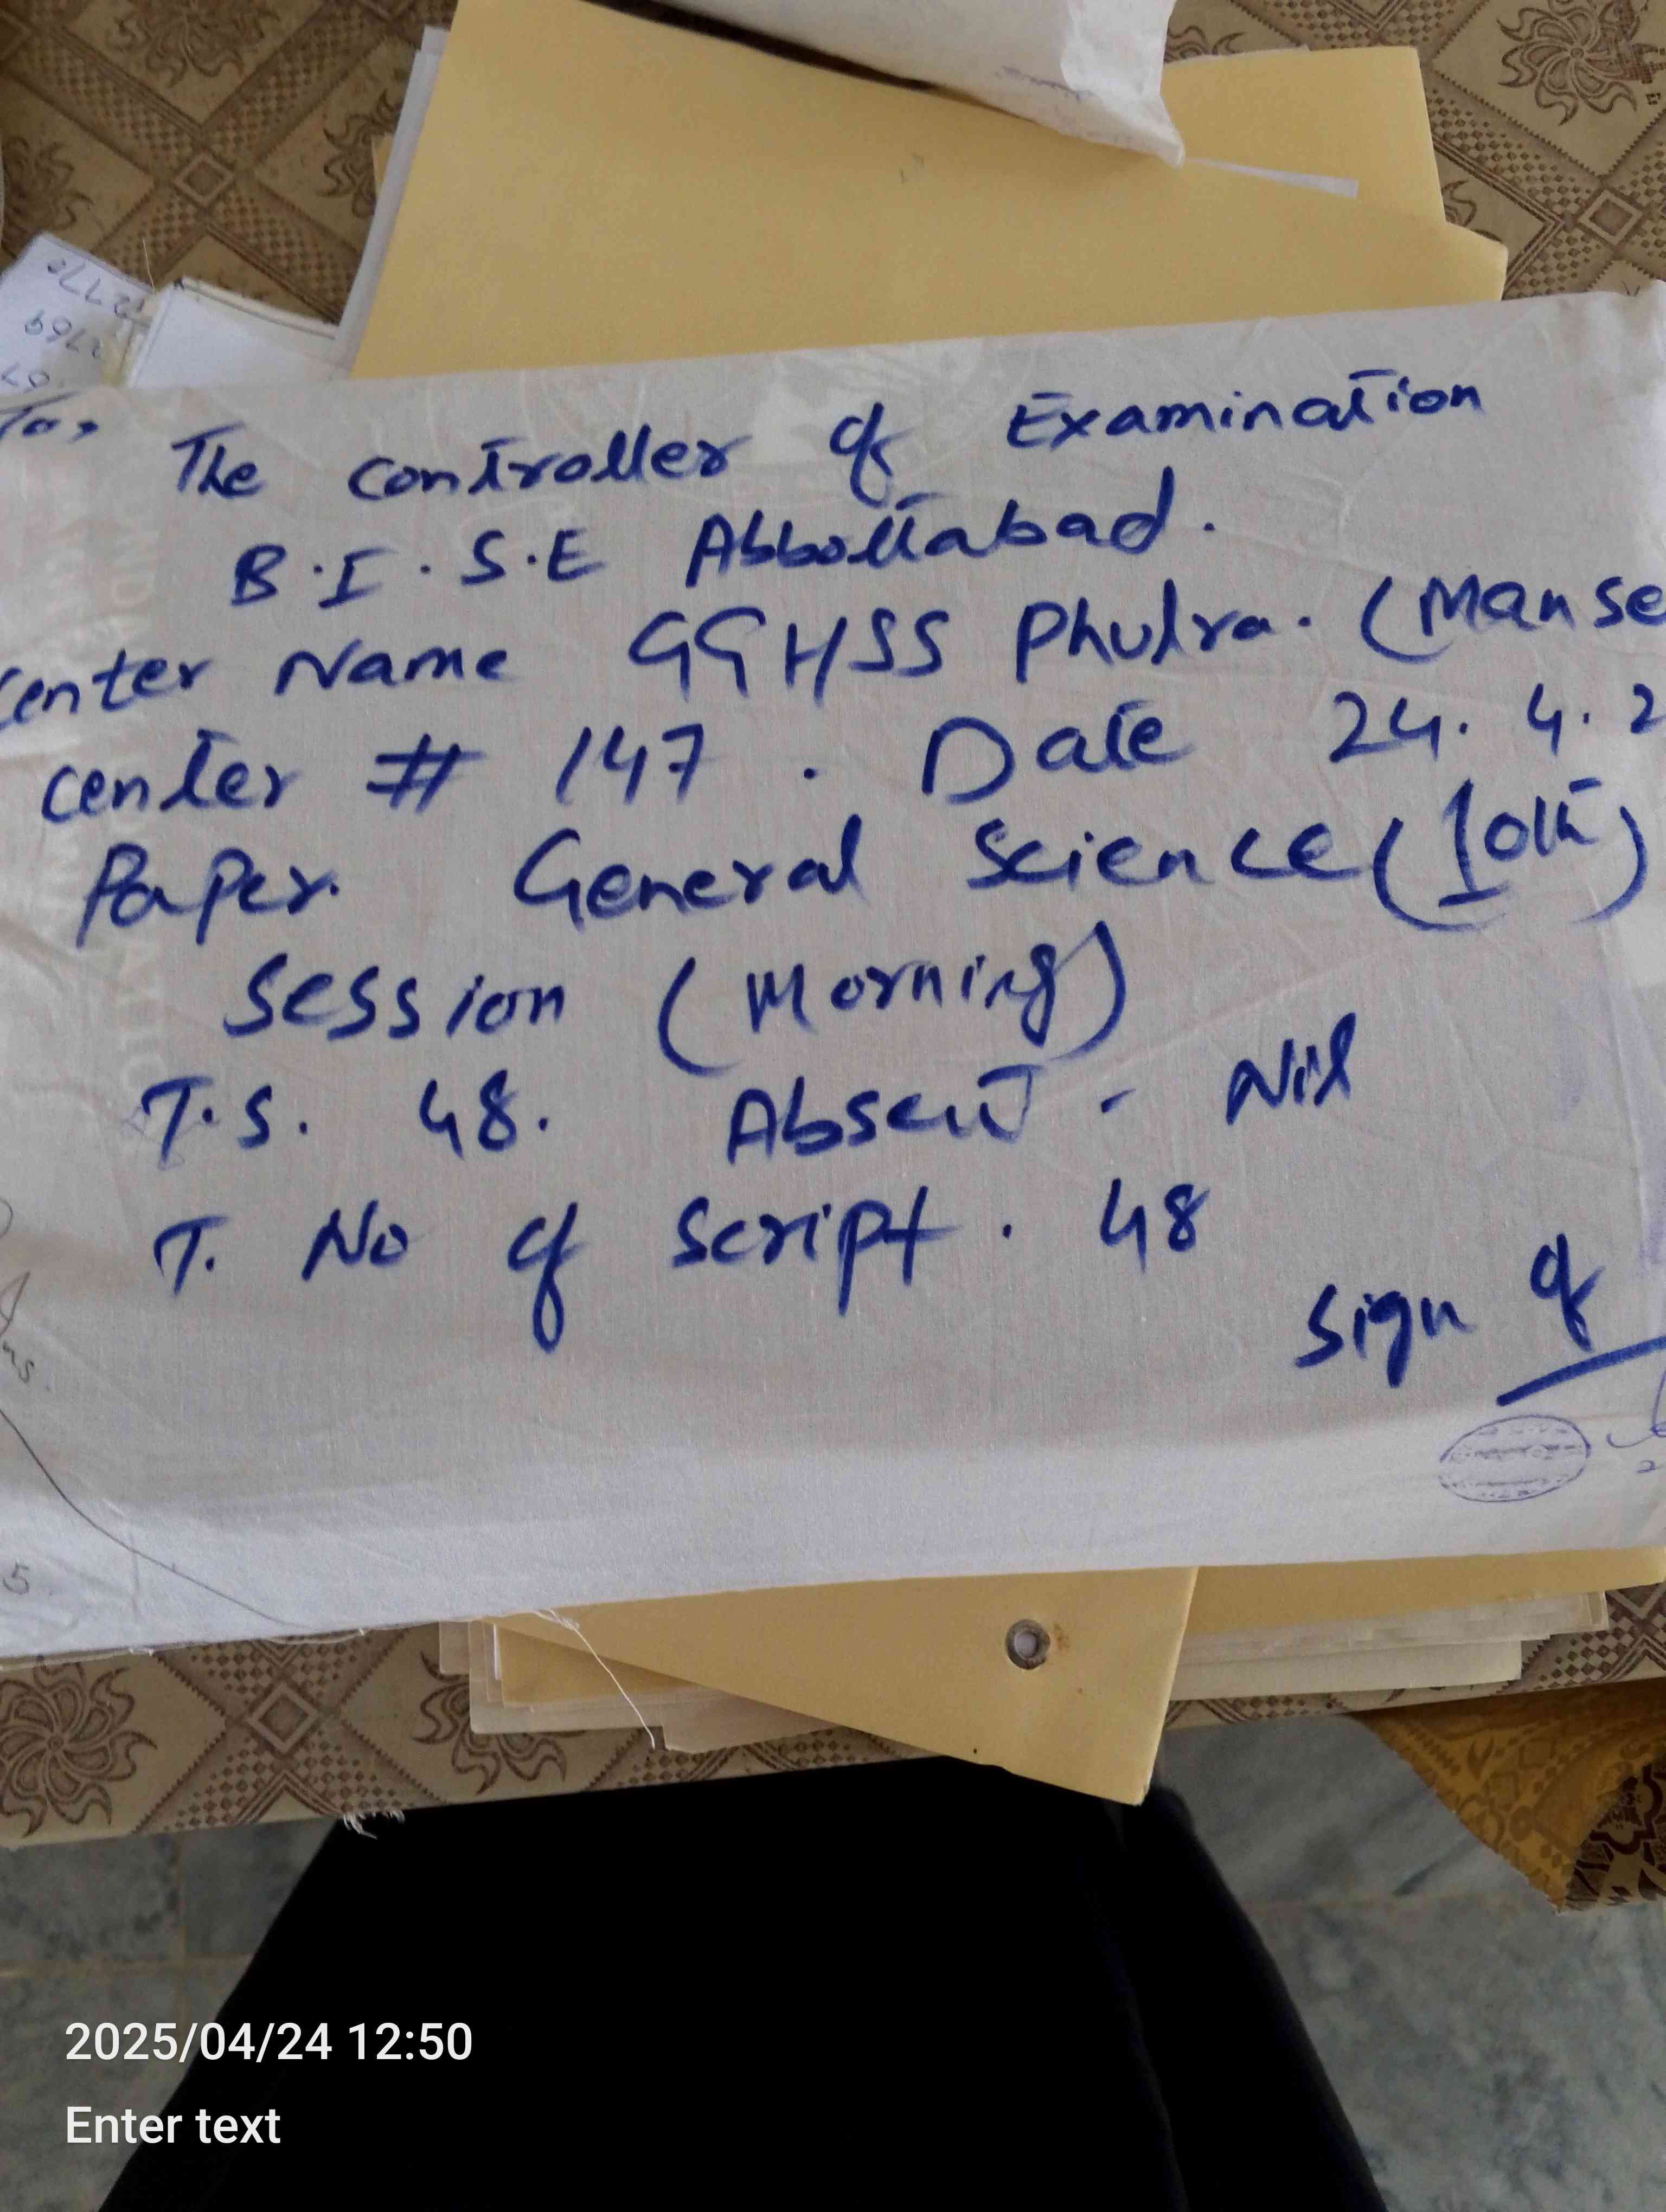 To,
The Controller of Examination
B.I.S.E Abbottabad.
Center Name GGHSS Phulra. (Manse
Center # 147. Date 24.4.2
Paper. General Science (10th)
Session (Morning)
T.S. 48. Absent - Nil
T. No of Script. 48
Sign of
5
2025/04/24 12:50
Enter text